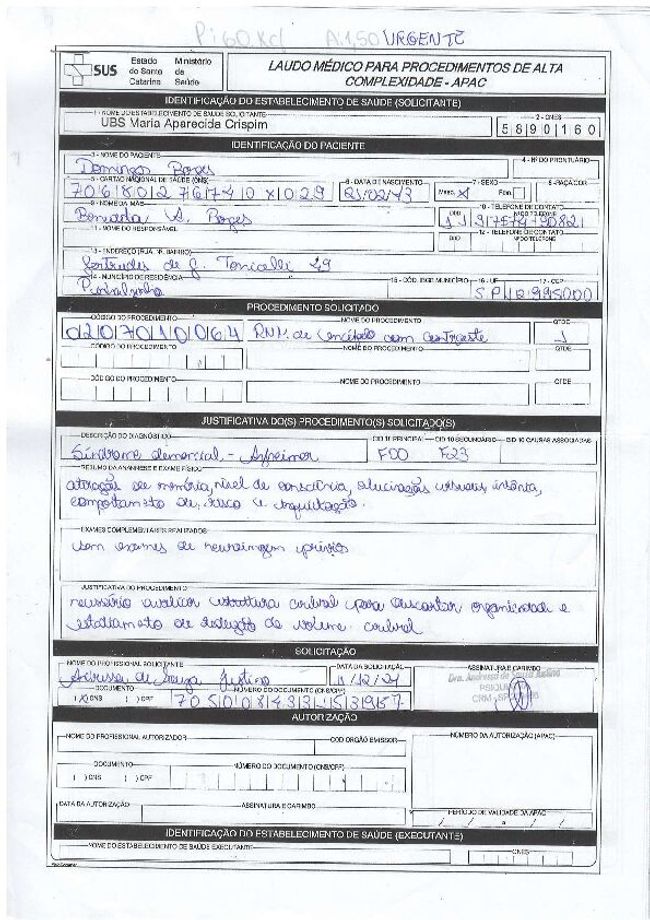 P: 60 Kg A: 1,50 URGENTE
SUS
Estado de Santa Catarina
Ministério da Saúde
LAUDO MÉDICO PARA PROCEDIMENTOS DE ALTA
COMPLEXIDADE - APAC
IDENTIFICAÇÃO DO ESTABELECIMENTO DE SAÚDE (SOLICITANTE)
1 - NOME DO ESTABELECIMENTO DE SAÚDE SOLICITANTE
2 - CNES
UBS Maria Aparecida Crispim
5890160
IDENTIFICAÇÃO DO PACIENTE
3 - NOME DO PACIENTE
4 - Nº DO PRONTUÁRIO
Domingos Borges
5 - CARTÃO NACIONAL DE SAÚDE (CNS)
6 - DATA DE NASCIMENTO
7 - SEXO
8 - RAÇA/COR
Masc. X Fem.
9 - NOME DA MÃE
10 - TELEFONE DE CONTATO
DDD Nº DO TELEFONE
11 - NOME DO RESPONSÁVEL
12 - TELEFONE DE CONTATO
DDD Nº DO TELEFONE
13 - ENDEREÇO (RUA, Nº, BAIRRO)
14 - MUNICÍPIO DE RESIDÊNCIA
15 - CÓD. IBGE MUNICÍPIO
16 - UF
17 - CEP
Pinhalzinho
SP 12995000
PROCEDIMENTO SOLICITADO
CÓDIGO DO PROCEDIMENTO
NOME DO PROCEDIMENTO
QTDE
RNM de encéfalo com contraste
1
CÓDIGO DO PROCEDIMENTO
NOME DO PROCEDIMENTO
QTDE
CÓDIGO DO PROCEDIMENTO
NOME DO PROCEDIMENTO
QTDE
JUSTIFICATIVA DO(S) PROCEDIMENTO(S) SOLICITADO(S)
DESCRIÇÃO DO DIAGNÓSTICO
CID 10 PRINCIPAL
CID 10 SECUNDÁRIO
CID 10 CAUSAS ASSOCIADAS
Síndrome demencial - Alzheimer
F00
F23
RESUMO DA ANAMNESE E EXAME FÍSICO
alteração de memória, nível de consciência, alucinações visuais, insônia,
comportamento de risco e inquietação.
EXAMES COMPLEMENTARES REALIZADOS
sem exames de neuroimagem prévios
JUSTIFICATIVA DO PROCEDIMENTO
necessário avaliar estrutura cerebral para descartar organicidade e
estadiamento de redução de volume cerebral
SOLICITAÇÃO
NOME DO PROFISSIONAL SOLICITANTE
DATA DA SOLICITAÇÃO
ASSINATURA E CARIMBO
Andressa de Souza Justino
Dra. Andressa de Souza Justino
DOCUMENTO
NÚMERO DO DOCUMENTO (CNS/CPF)
(X) CNS ( ) CPF
AUTORIZAÇÃO
NOME DO PROFISSIONAL AUTORIZADOR
CÓD. ORGÃO EMISSOR
NÚMERO DA AUTORIZAÇÃO (APAC)
DOCUMENTO
NÚMERO DO DOCUMENTO (CNS/CPF)
( ) CNS ( ) CPF
DATA DA AUTORIZAÇÃO
ASSINATURA E CARIMBO
PERÍODO DE VALIDADE DA APAC
IDENTIFICAÇÃO DO ESTABELECIMENTO DE SAÚDE (EXECUTANTE)
NOME DO ESTABELECIMENTO DE SAÚDE EXECUTANTE
CNES